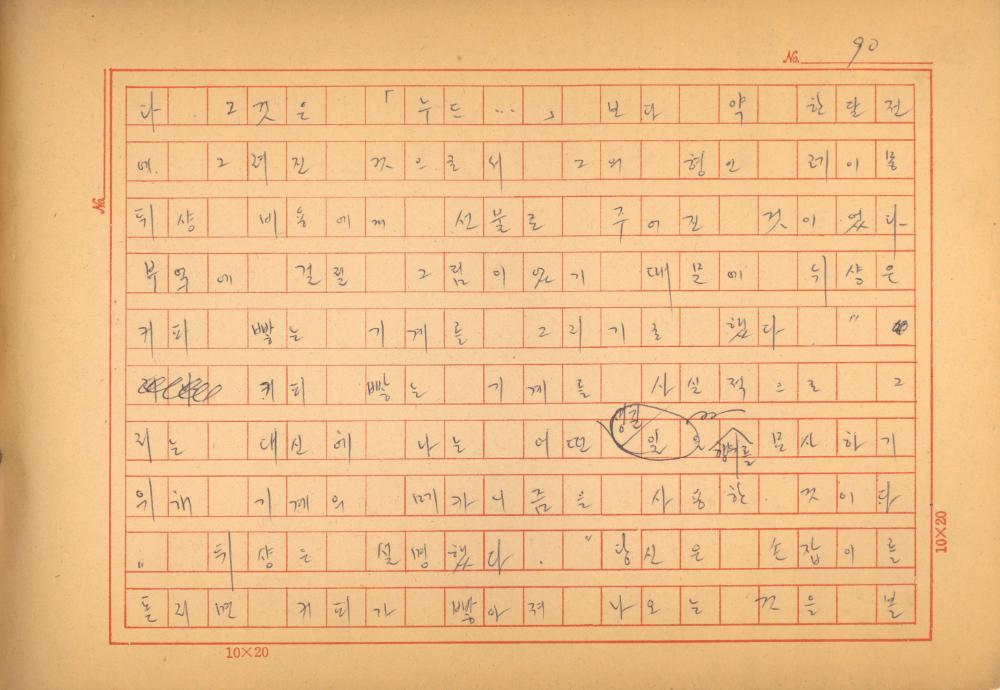 No. 90
다 그것은 「누드…」 보다 약 한달전
에 그려진 것으로서 그의 형인 레이몽
뒤샹 비용에게 선물로 주어진 것이었다
부엌에 걸릴 그림이었기 때문에 뒤샹은
커피 빻는 기계를 그리기로 했다. "
커피 빻는 기계를 사실적으로 그
리는 대신에 나는 어떤 일을 묘사하기
위해 기계의 메카니즘을 사용한 것이다
" 뒤샹은 설명했다. " 당신은 손잡이를
돌리면 커피가 빻아져 나오는 것을 볼
No.
10×20
10×20